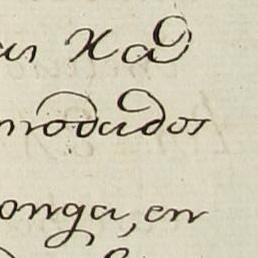 Xad
modados
onga, en